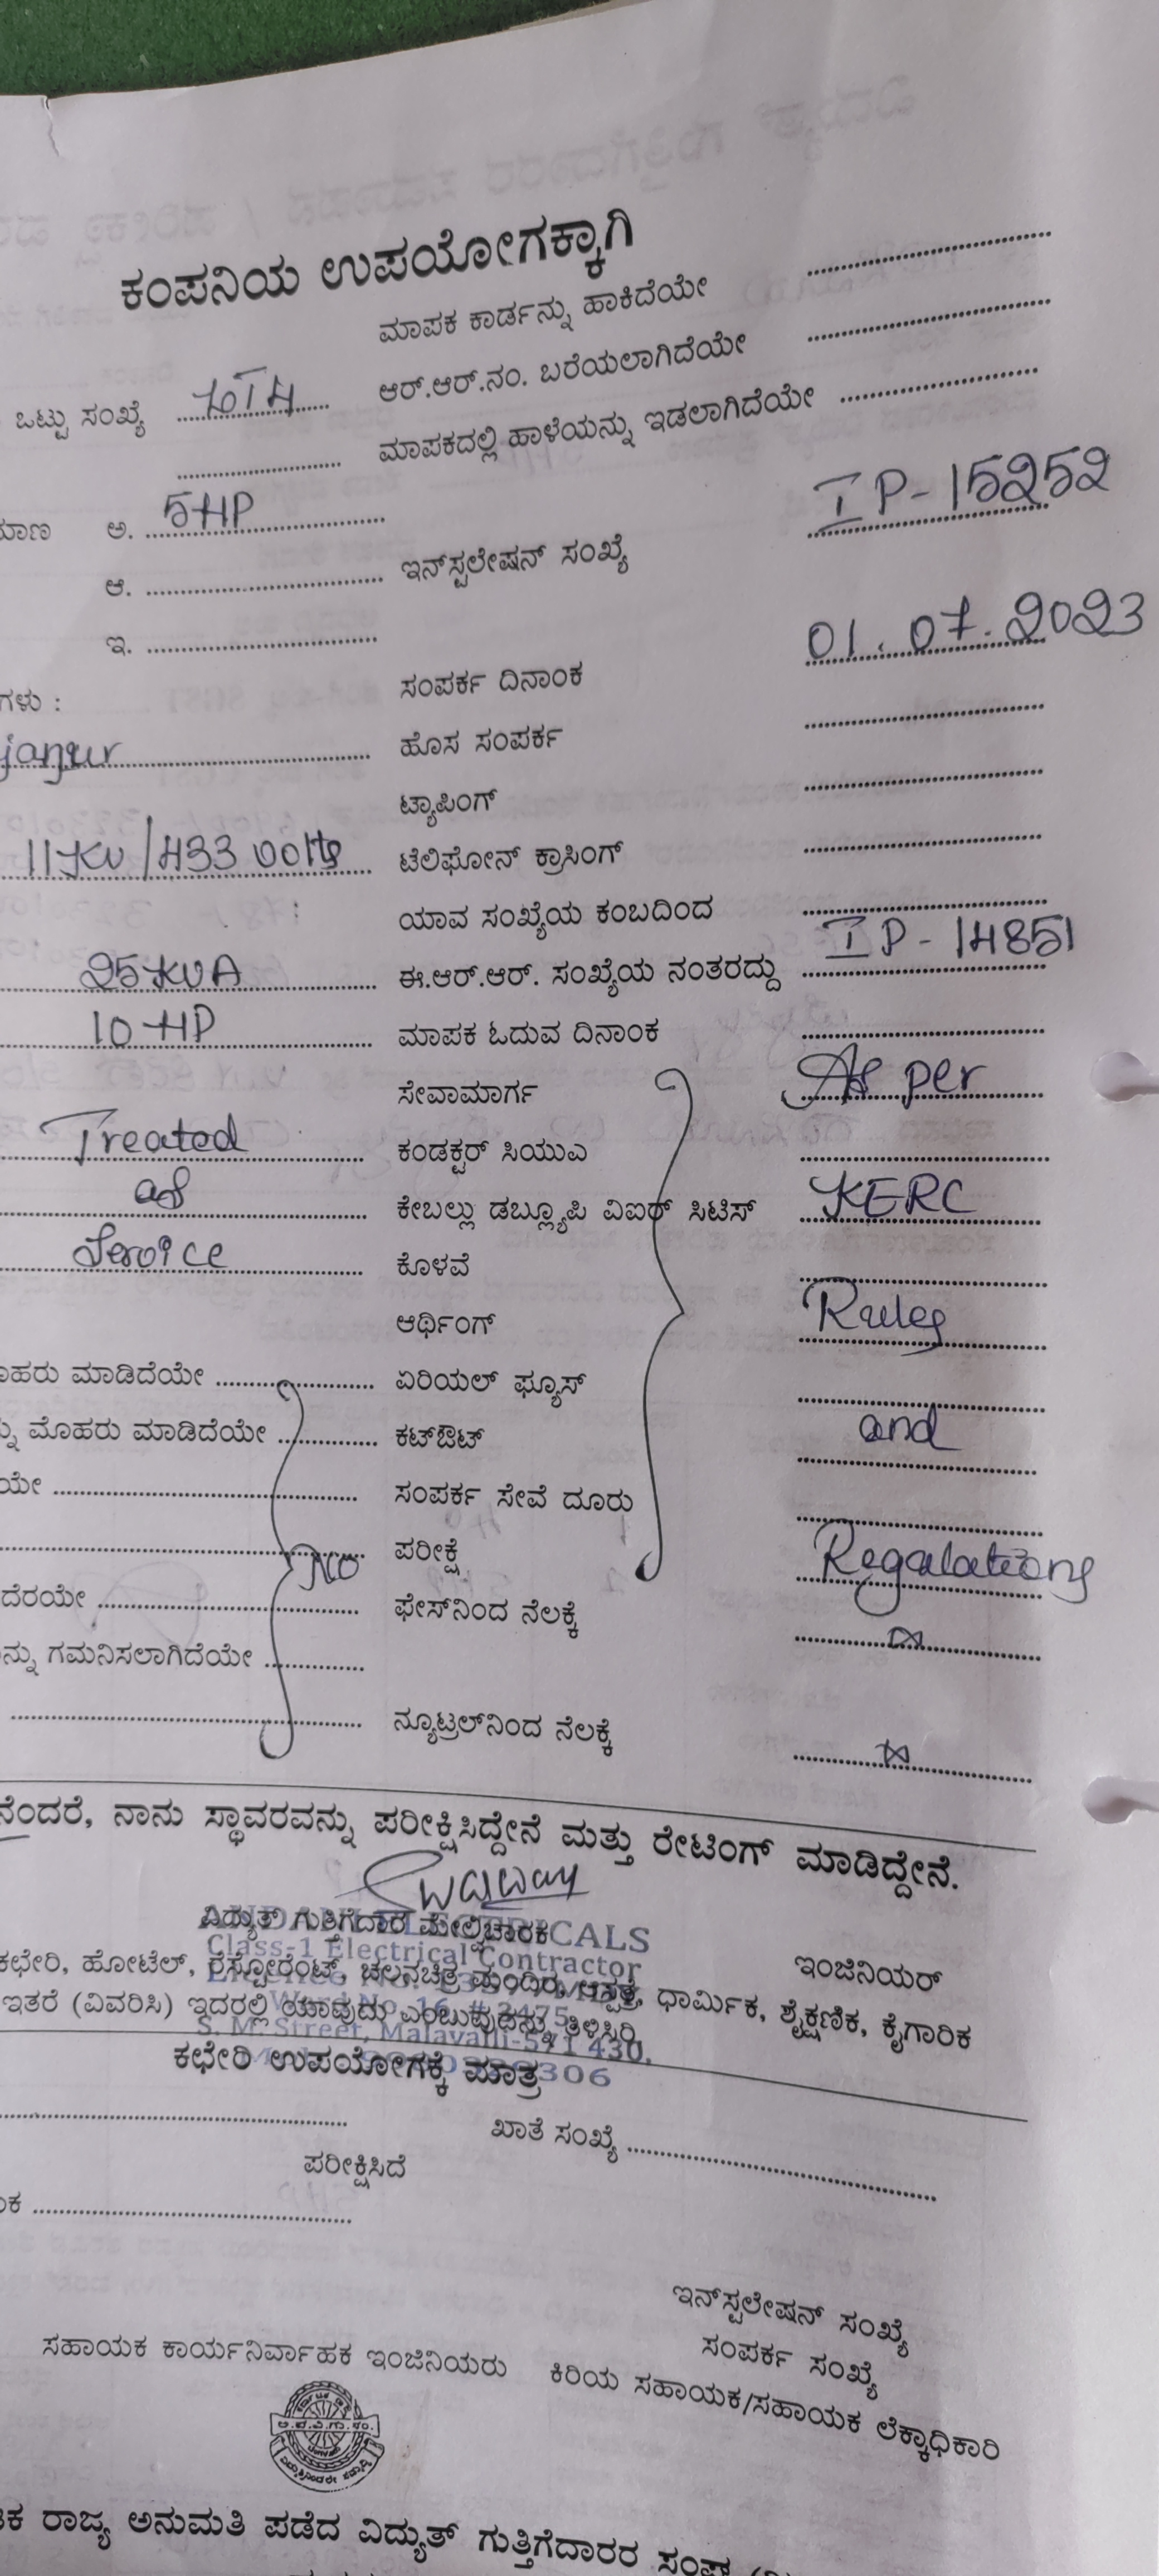 ಕಂಪನಿಯ ಉಪಯೋಗಕ್ಕಾಗಿ
ಮಾಪಕ ಕಾರ್ಡನ್ನು ಹಾಕಿದೆಯೇ
ಒಟ್ಟು ಸಂಖ್ಯೆ ಆರ್.ಆರ್.ನಂ. ಬರೆಯಲಾಗಿದೆಯೇ
ಮಾಪಕದಲ್ಲಿ ಹಾಳೆಯನ್ನು ಇಡಲಾಗಿದೆಯೇ
ಅ. 5HP
ಆ. ಇನ್‌ಸ್ಟಲೇಷನ್ ಸಂಖ್ಯೆ IP-15252
ಇ.
ಗಳು : ಸಂಪರ್ಕ ದಿನಾಂಕ 01.07.2023
ಹೊಸ ಸಂಪರ್ಕ
ಟ್ಯಾಪಿಂಗ್
11KV/433 Volts ಟೆಲಿಫೋನ್ ಕ್ರಾಸಿಂಗ್
ಯಾವ ಸಂಖ್ಯೆಯ ಕಂಬದಿಂದ
25KVA ಈ.ಆರ್.ಆರ್. ಸಂಖ್ಯೆಯ ನಂತರದ್ದು IP-14851
10 HP ಮಾಪಕ ಓದುವ ದಿನಾಂಕ
ಸೇವಾಮಾರ್ಗ As per
Treated ಕಂಡಕ್ಟರ್ ಸಿಯುಎ
as ಕೇಬಲ್ಲು ಡಬ್ಲ್ಯೂಪಿ ವಿಐಆರ್ ಸಿಟಿಸ್ KERC
Service ಕೊಳವೆ
ಆರ್ಥಿಂಗ್ Rules
ಮಾಡಿದೆಯೇ ಏರಿಯಲ್ ಫ್ಯೂಸ್
ಮೊಹರು ಮಾಡಿದೆಯೇ ಕಟ್‌ಔಟ್ and
ಸಂಪರ್ಕ ಸೇವೆ ದೂರು
No ಪರೀಕ್ಷೆ Regalations
ಫೇಸ್‌ನಿಂದ ನೆಲಕ್ಕೆ
ಗಮನಿಸಲಾಗಿದೆಯೇ
ನ್ಯೂಟ್ರಲ್‌ನಿಂದ ನೆಲಕ್ಕೆ
ನೆಂದರೆ, ನಾನು ಸ್ಥಾವರವನ್ನು ಪರೀಕ್ಷಿಸಿದ್ದೇನೆ ಮತ್ತು ರೇಟಿಂಗ್ ಮಾಡಿದ್ದೇನೆ.
ವಿದ್ಯುತ್ ಗುತ್ತಿಗೆದಾರ ಮೇಲ್ವಿಚಾರಕ
Class-1 Electrical Contractor
ಇಂಜಿನಿಯರ್
ಕಛೇರಿ, ಹೋಟೆಲ್, ರೆಸ್ಟೋರೆಂಟ್, ಚಲನಚಿತ್ರ ಮಂದಿರ, ಆಸ್ಪತ್ರೆ, ಧಾರ್ಮಿಕ, ಶೈಕ್ಷಣಿಕ, ಕೈಗಾರಿಕ
ಇತರೆ (ವಿವರಿಸಿ) ಇದರಲ್ಲಿ ಯಾವುದು ಎಂಬುವುದನ್ನು ತಿಳಿಸಿರಿ
S. M. Street, Malavalli-571 430.
ಕಛೇರಿ ಉಪಯೋಗಕ್ಕೆ ಮಾತ್ರ
ಖಾತೆ ಸಂಖ್ಯೆ
ಪರೀಕ್ಷಿಸಿದೆ
ಇನ್‌ಸ್ಟಲೇಷನ್ ಸಂಖ್ಯೆ
ಸಂಪರ್ಕ ಸಂಖ್ಯೆ
ಸಹಾಯಕ ಕಾರ್ಯನಿರ್ವಾಹಕ ಇಂಜಿನಿಯರು ಕಿರಿಯ ಸಹಾಯಕ/ಸಹಾಯಕ ಲೆಕ್ಕಾಧಿಕಾರಿ
ರಾಜ್ಯ ಅನುಮತಿ ಪಡೆದ ವಿದ್ಯುತ್ ಗುತ್ತಿಗೆದಾರರ ಸಂಘ